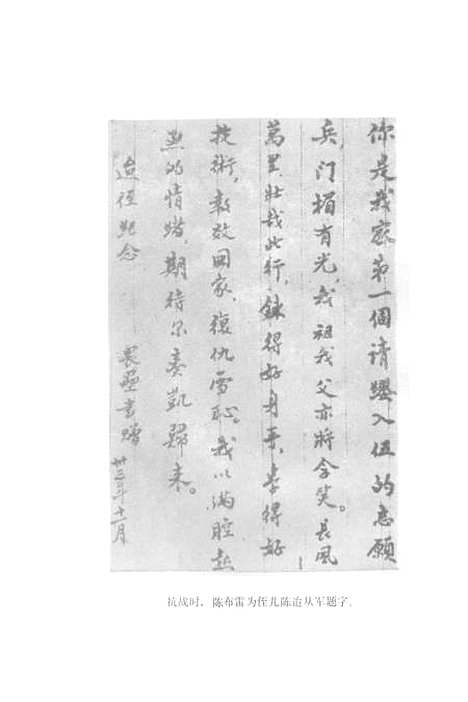 你是我家第一個請纓入伍的志願
兵，门楣有光，我祖我父亦將含笑。長風
萬里，壯哉此行，鍊得好身手，学得好
技術，報效國家，復仇雪恥。我以滿腔熱
烈的情緒，期待尔奏凱歸来。
迨侄紀念
畏壘書贈
卅三年十一月
抗战时，陈布雷为侄儿陈迨从军题字。